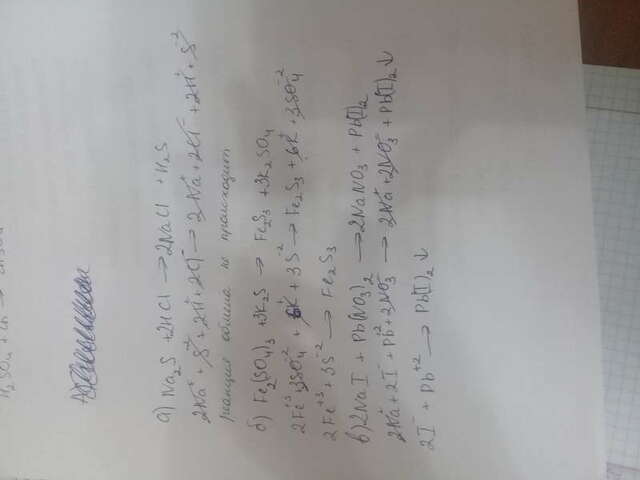 H₂SO₄ +
а) Na₂S + 2HCl → 2NaCl + H₂S
2Na⁺ + S⁻² + 2H⁺ + 2Cl⁻ → 2Na⁺ + 2Cl⁻ + 2H⁺ + S⁻²
реакция обмена не происходит
б) Fe₂(SO₄)₃ + 3K₂S → Fe₂S₃ + 3K₂SO₄
2Fe⁺³ + 3SO₄⁻² + 6K⁺ + 3S⁻² → Fe₂S₃ + 6K⁺ + 3SO₄⁻²
2Fe⁺³ + 3S⁻² → Fe₂S₃
в) 2NaI + Pb(NO₃)₂ → 2NaNO₃ + Pb(I)₂
2Na⁺ + 2I⁻ + Pb⁺² + 2NO₃⁻ → 2Na⁺ + 2NO₃⁻ + Pb(I)₂↓
2I⁻ + Pb⁺² → Pb(I)₂↓